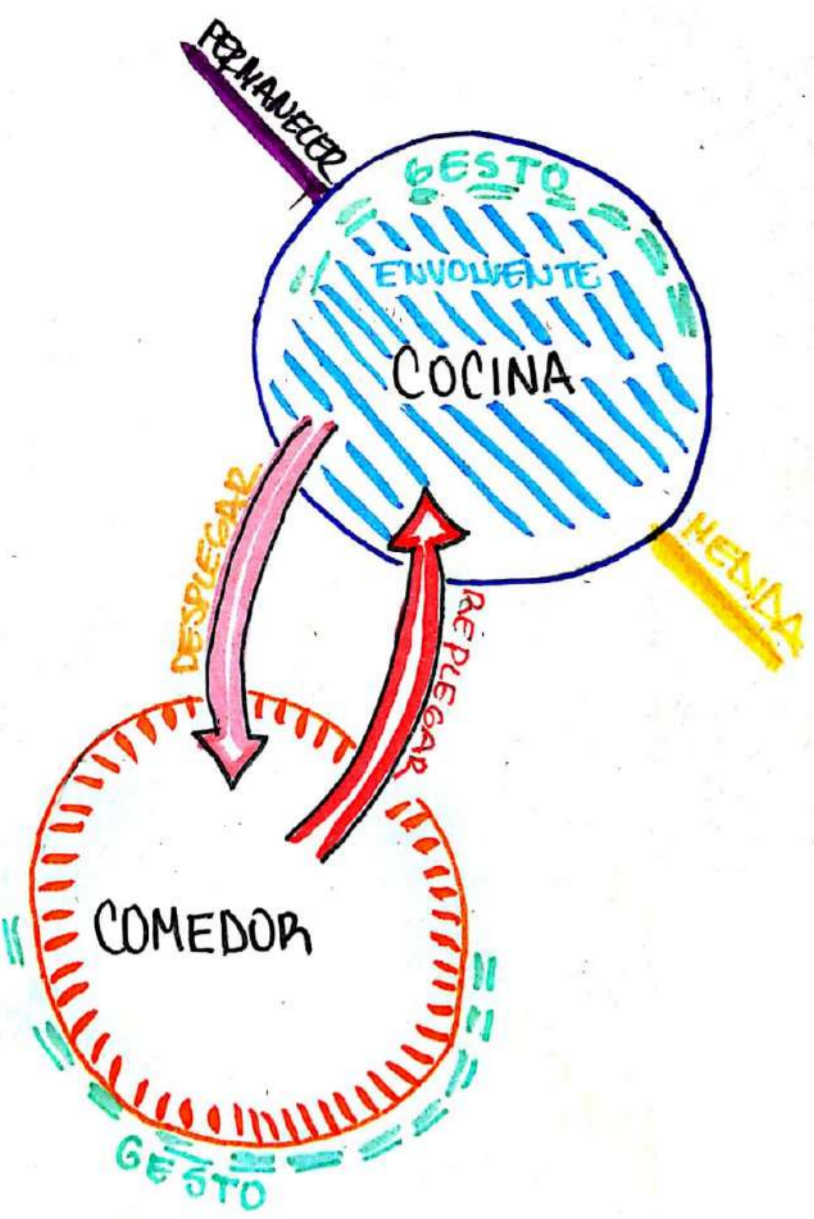 PERMANECER
GESTO
ENVOLVENTE
COCINA
DESPLEGAR
MEDIDA
REPLEGAR
COMEDOR
GESTO